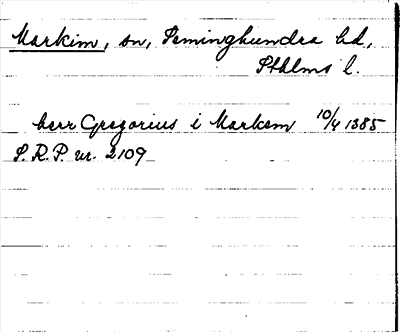 Markim, sn, Seminghundra hd,
Sthlms l.
herr Gregorius i Markem 10/4 1385
S.R.P. nr. 2109